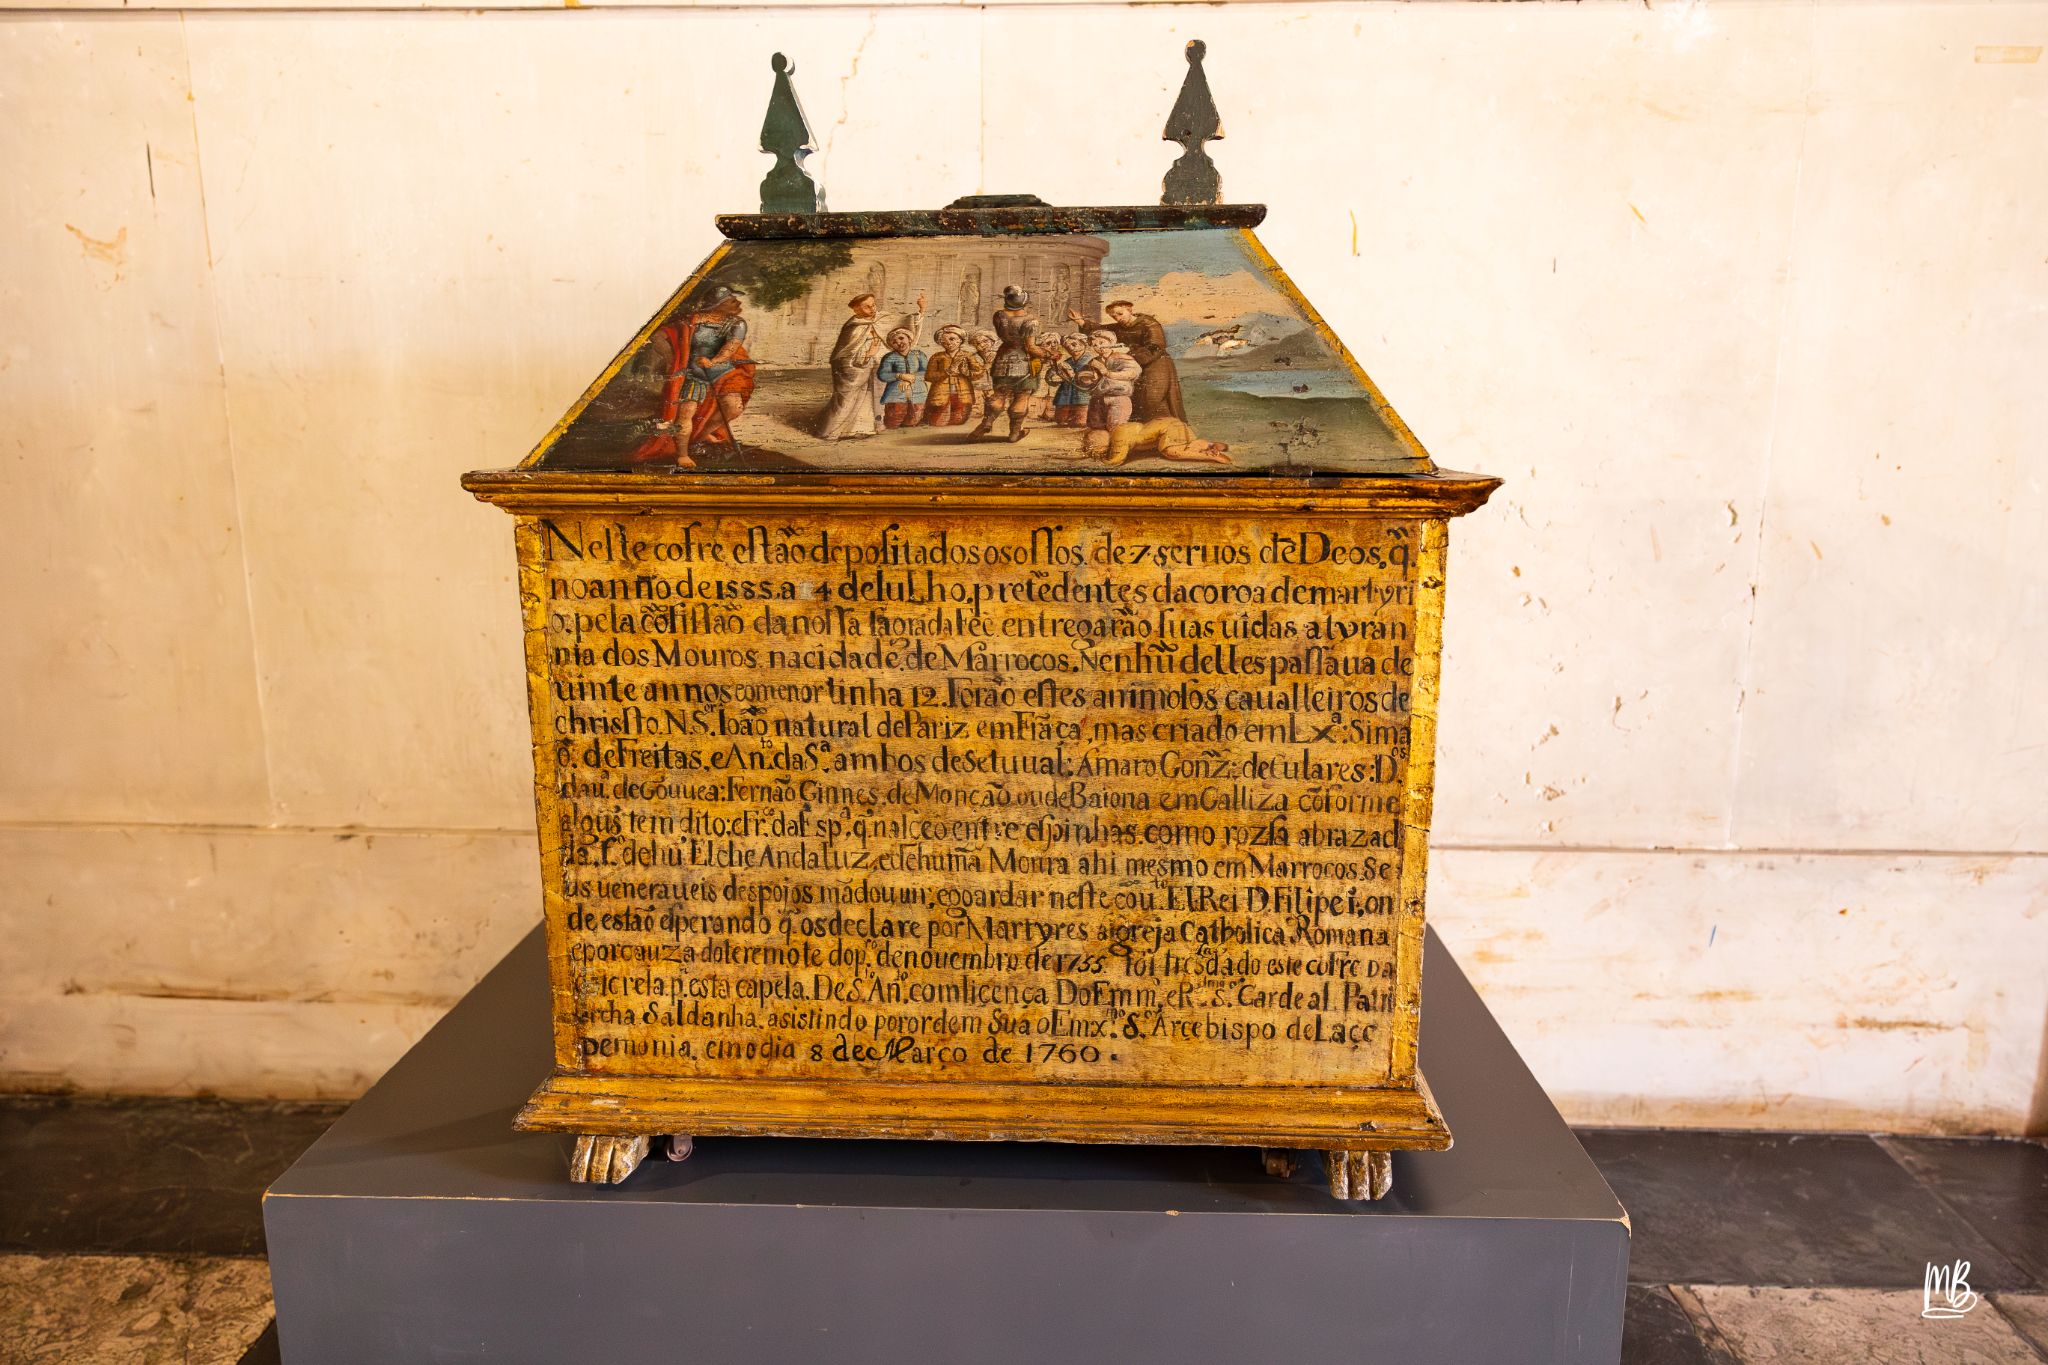 Neste cofre estão depositados os ossos. de 7 seruos dē Deos. q̃.
no an ño de 1585. a 4 de Iulho. pretēdentes da coroa de martyri
o. pela cõfissão da nossa sagrada Feè. entregarão suas uidas a tyran
nia dos Mouros. na cidade. de Marrocos. Nenhũ delles passaua de
uinte annos eo menor tinha 12. Forão estes animosos caualleiros de
christo. N. S.ᵒʳ Ioão natural de Pariz em Frãça, mas criado em Lxᵃ: Sima
õ. de Freitas. e An.ᵗᵒ da Sᵃ. ambos de Setuual: Amaro Gonz̃: de Culares: D.ᵒˢ
dau. de Gouuea: Fernão Ginnes. de Monção ou de Baiona em Galliza cõforme
algũs tem dito: e Fr.ᶜᵒ da Esp.ᵃ q̃. nasceo entre espinhas. como rozsa abrazad
da. f.ᵒ de hũ. Elche Andaluz. e de huma Moura ahi mesmo em Marrocos. Se
us uenераueis despojos mãdou uir; e goardar neste cõu.ᵗᵒ El Rei D. Filipe i; on
de estão esperando q̃. os declare por Martyres a igreja Catholica Romana
e por cauza do teremote do p.ʳᵒ de nouembro de 1755. foi tresladado este cofre da
 p.ᵃ esta capela. De S.ᵗᵒ An.ᵗᵒ com licença Do Emm.ᵐᵒ e R.ᵐᵒ S.ᵒʳ Cardeal. Patri
archa Saldanha. asistindo por ordem Sua o Emx.ᵐᵒ S.ᵒʳ Arcebispo de Lacc
Demonia. em o dia 8 de Março de 1760.
MB